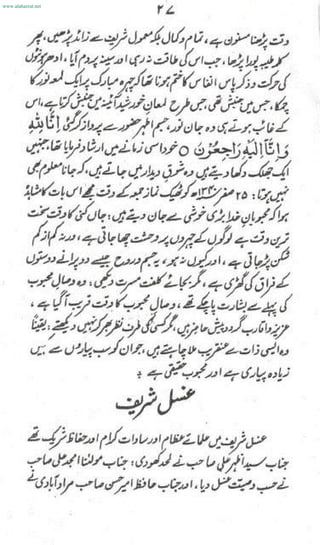 www.alahazrat.net
۲۷
وقت پڑھنا مسنون ہے، تمام و کمال بلکہ معمول شریف سے زائد پڑھیں، پھر
کلمہ طیبہ پورا پڑھا، جب اس کی طاقت نہ رہی اور سینہ پر دم آیا، ادھر ہونٹوں
کی حرکت و ذکر پاس انفاس کا ختم ہونا تھا کہ چہرہ مبارک پر ایک لمعہ نور کا
چمکا، جس میں جنبش تھی، جس طرح لمعان خورشید آئینہ میں جنبش کرتا ہے، اس
کے غائب ہوتے ہی وہ جان نور، جسم اطہر حضور سے پرواز کر گئی اِنَّا لِلّٰہِ
وَاِنَّا اِلَیْہِ رَاجِعُوْنَ ○ خود اسی زمانے میں ارشاد فرمایا تھا، جنہیں
ایک جھلک دکھا دیتے ہیں وہ شوق دیدار میں جاتے ہیں، کہ جانا معلوم بھی
نہیں ہوتا: ۲۵ صفر ۱۳۴۰ھ کو ٹھیک نماز جمعہ کے وقت مجھے اس بات کا مشاہدہ
ہوا کہ محبوبان خدا بڑی خوشی سے جان دیتے ہیں: جاں کنی کا وقت سخت
ترین وقت ہے لوگوں کے چہروں پر وحشت چھا جاتی ہے، ورنہ کم از کم
شکن پڑ جاتی ہے، اور کیوں نہ ہو، یہ جسم و روح جیسے دو پرانے دوستوں
کے فراق کی گھڑی ہے، مگر بجائے کلفت مسرت دیکھی: وہ وصال محبوب
کی پہلے سے بشارت پا چکے تھے، وصال محبوب کا وقت قریب آ گیا ہے،
عزیز و اقارب گرد و پیش حاضر ہیں، مگر کسی کی طرف نظر بھر کر نہیں دیکھتے: یقیناً
وہ ایسی ذات سے عنقریب ملا چاہتے ہیں، جو ان کو سب پیاروں سے
زیادہ پیاری ہے اور محبوب حقیقی ہے
غسل شریف
غسل شریف میں علمائے عظام اور سادات کرام اور حفاظ شریک تھے
جناب سید اظہر علی صاحب نے لحد کھودی: جناب مولٰنا امجد علی صاحب
نے حسب وصیت غسل دیا، اور جناب حافظ امیر حسن صاحب مراد آبادی نے